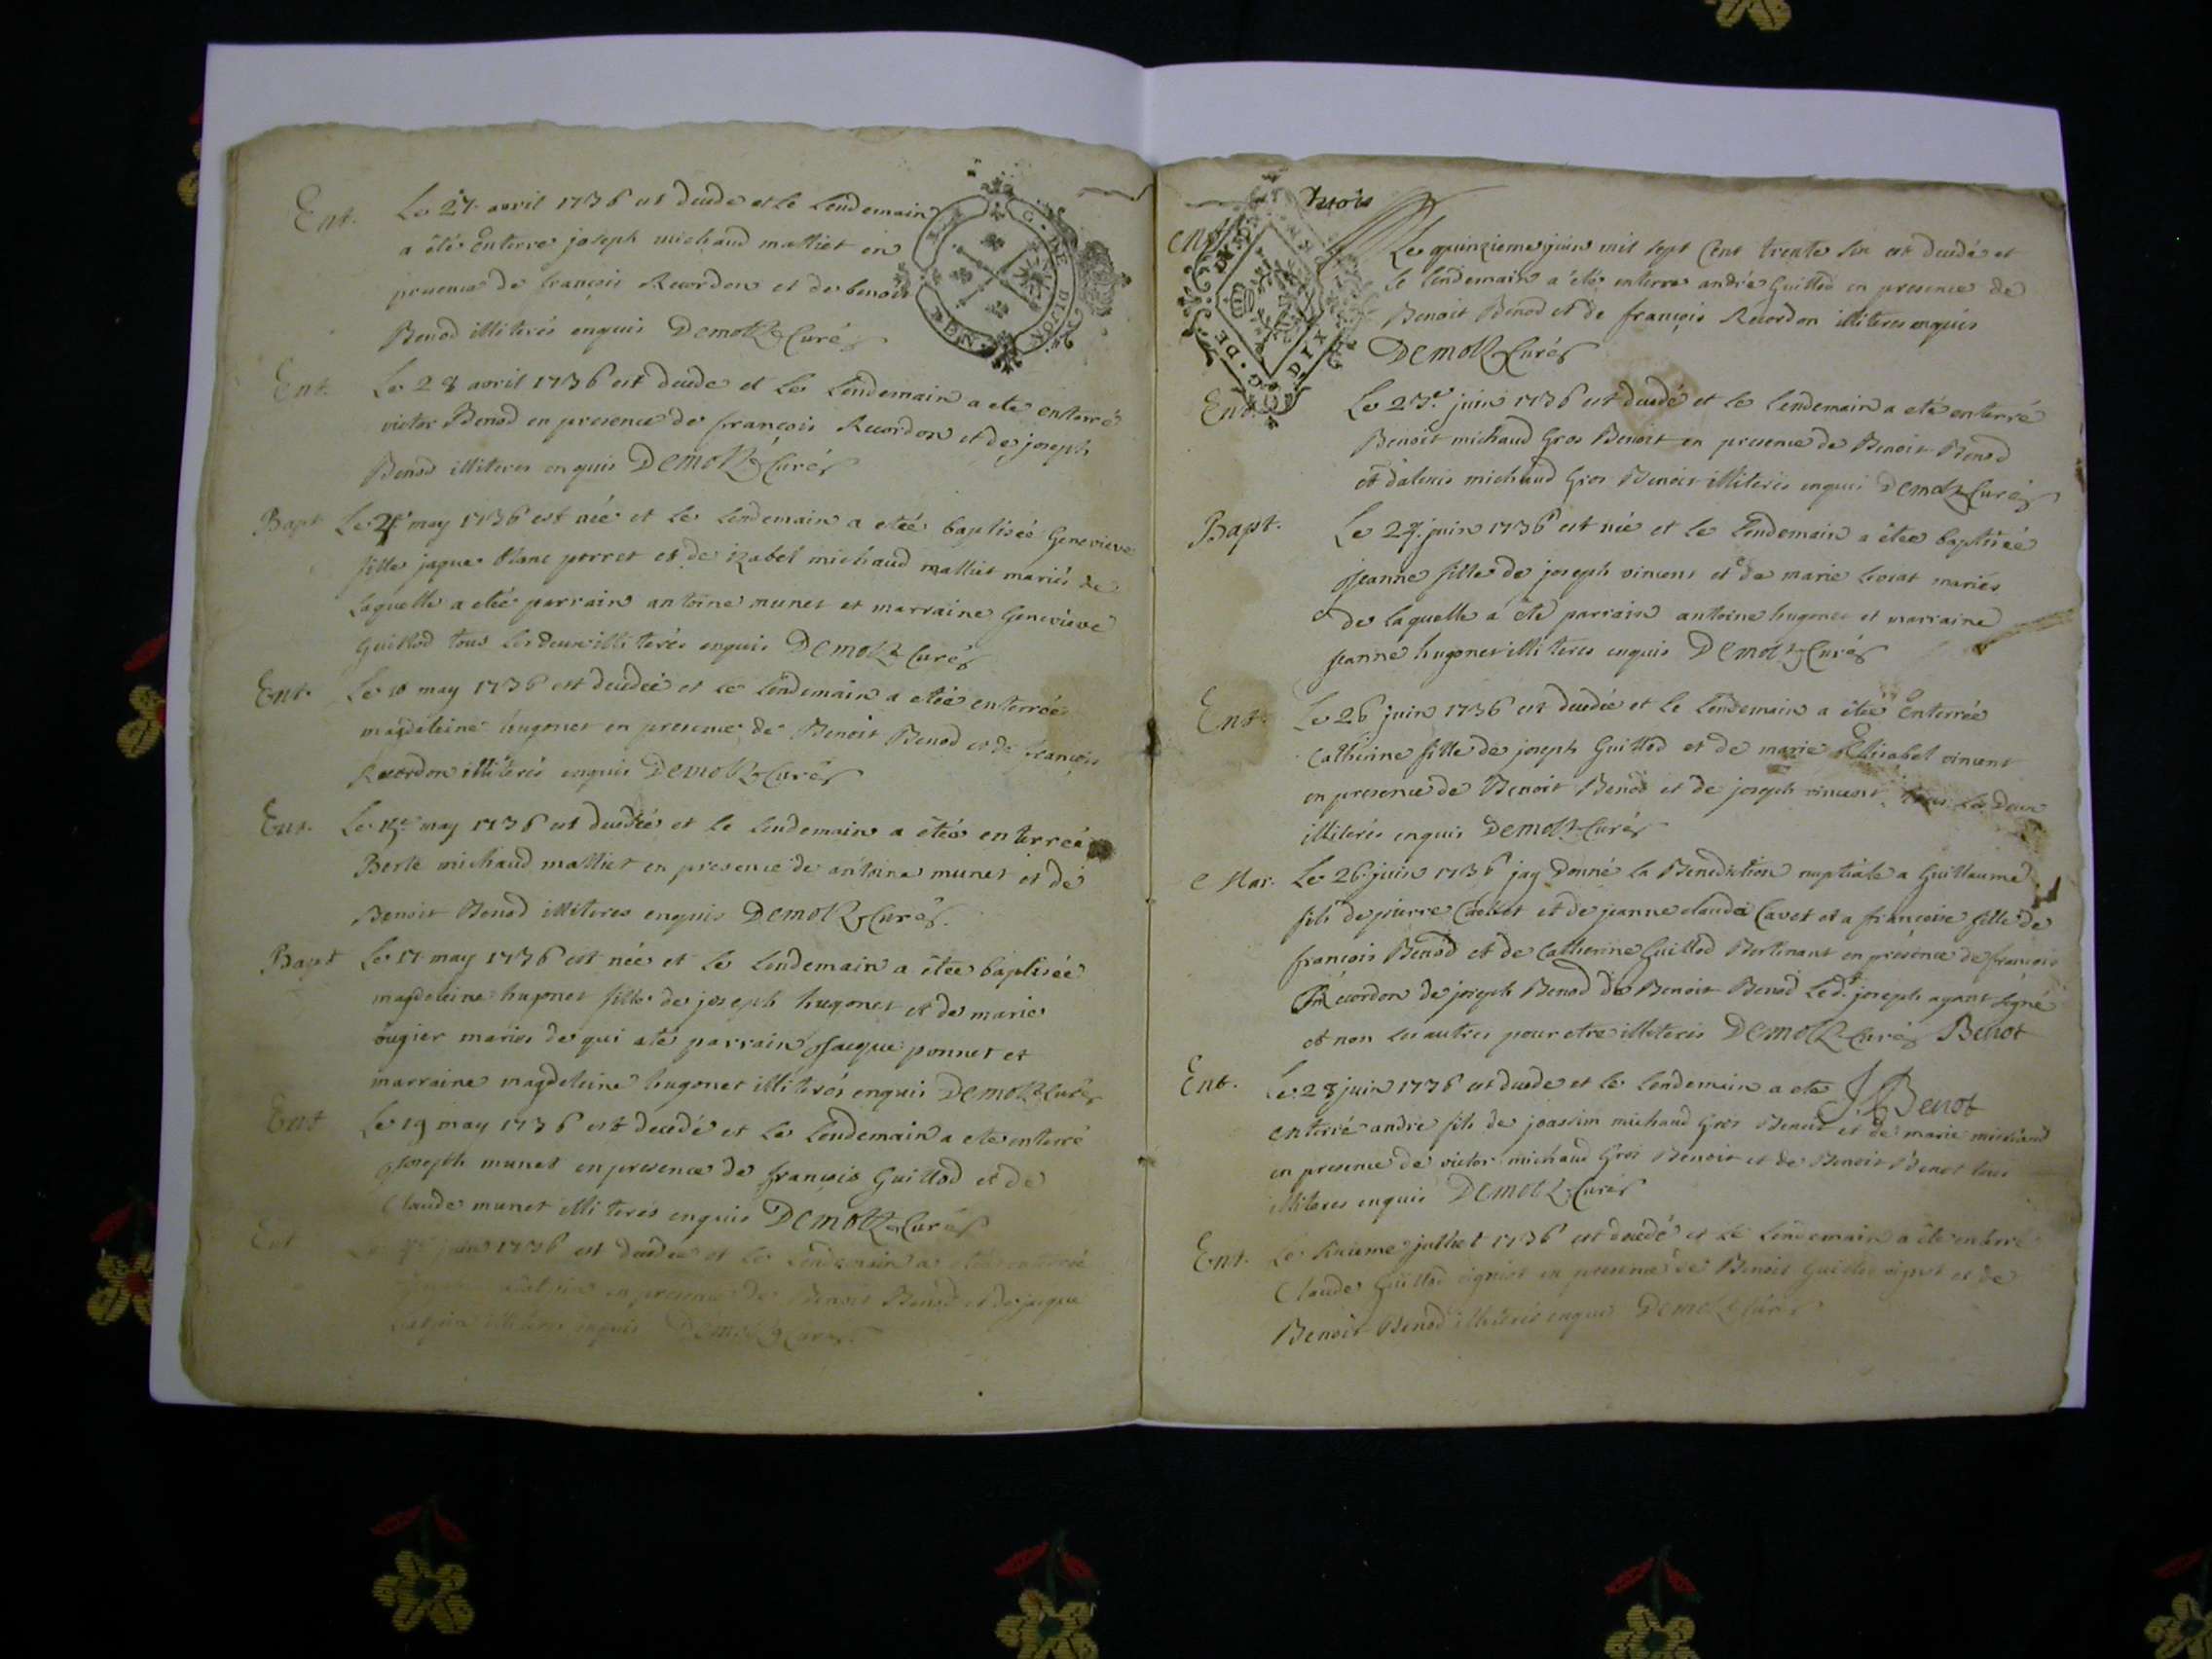 Ent. Le 27. avril 1736 est decede et le lendemain
a été enterre joseph michaud malliet en
presence de françois Recordon et de benoit
Benod illiterés enquis Demotz Curé
Ent. Le 28 avril 1736 est decede et le lendemain a ete enterré
victor Benod en presence de françois Recordon et de joseph
Benod illiteres enquis Demotz Curé
Bapt Le may 1736 est née et le lendemain a etée baptisée Genevieve
fille jaque blanc perret et de izabel michaud malliet mariés de
laquelle a etée parrain antoine munet et marraine Genevieve
Guillod tous les deux illiterés enquis Demotz Curé
Ent. Le 10 may 1736 est decedée et le lendemain a etée enterrée
magdeleine hugonet en presence de Benoit Benod et de françois
Recordon illiterés enquis Demotz Curé
Ent. Le may 1736 est decedée et le lendemain a etée enterrée
Berte michaud malliet en presence de antoine munet et de
Benoit Benod illiteres enquis Demotz Curé
Bapt Le 17 may 1736 est née et le lendemain a étee baptisée
magdeleine hugonet fille de joseph hugonet et de marie
ougier maries de qui a eté parrain jacque ponnet et
marraine magdeleine hugonet illiterés enquis Demotz Curé
Ent Le 19 may 1736 est decedé et le lendemain a ete enterré
joseph munet en presence de françois Guillod et de
Claude munet illiterés enquis Demotz Curé
Ent Le juin 1736 est decedee et le lendemain a
en presence de Benoit Benod et de jacque
illiteres enquis Demotz Curé
G. DE DIJON
trois
Ent Le quinzieme juin mil sept cent trente six est decedé et
le lendemain a été enterre andré Guillod en presence de
Benoit Benod et de françois Recordon illiteres enquis
Demotz Curé
Ent. Le 23e. juin 1736 est decedé et le lendemain a eté enterré
Benoit michaud Gros Benoit en presence de Benoit Benod
et d'alexis michaud Gros Benoit illiterés enquis Demotz Curé
Bapt. Le 24. juin 1736 est née et le lendemain a étée baptisée
jeanne fille de joseph vincent et de marie mariés
de laquelle a été parrain antoine hugonet et marraine
jeanne hugonet illiteres enquis Demotz Curé
Ent. Le 26 juin 1736 est decedée et le lendemain a étée enterrée
Catherine fille de joseph Guillod et de marie Elisabet vincent
en presence de Benoit Benod et de joseph vincent tous les deux
illiterés enquis Demotz Curé
Mar. Le 26. juin 1736 jay donné la Benediction nuptiale a Guillaume
fils de pierre et de jeanne claude Cavet et a françoise fille de
françois Benod et de Catherine Guillod Bertinant en présence de françois
Recordon de joseph Benod de Benoit Benod Led.t joseph ayant signé
et non les autres pour etre illiteris Demotz Curé Benot
J. Benot
Ent. Le 28 juin 1736 est decede et le lendemain a ete
enterré andre fils de joassim michaud Gros Benoit et de marie michaud
en presence de victor michaud Gros Benoit et de Benoit Benot tous
illiteres enquis Demotz Curé
Ent. Le juillet 1736 est decedé et le lendemain a été enterré
Claude Guillod en presence de Benoit Guillod et de
Benoit Benod illiterés enquis Demotz Curé